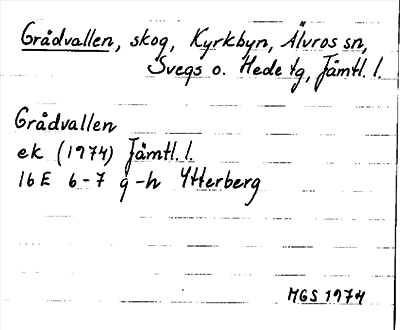 Grådvallen, skog, Kyrkbyn, Älvros sn,
Svegs o. Hede tg, Jämtl. l.
Grådvallen
ek (1974) Jämtl. l.
16E 6-7 g-h Ytterberg
MGS 1974